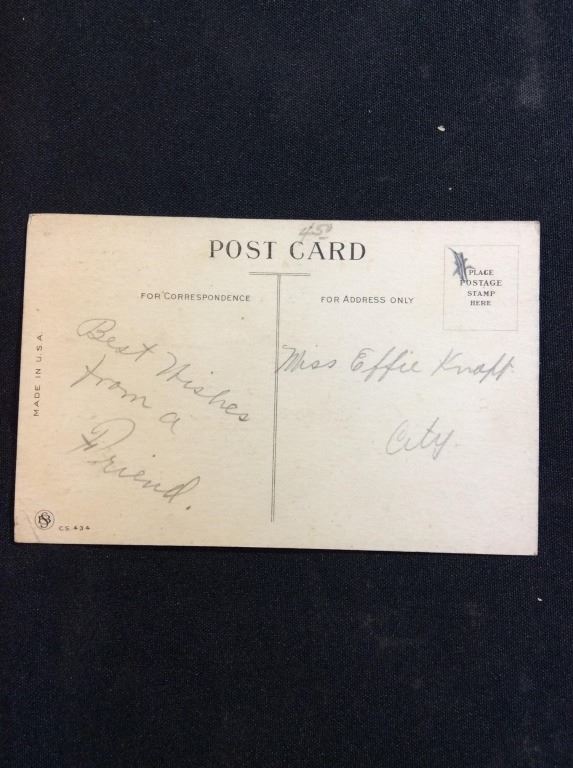 4.50
POST CARD
PLACE
POSTAGE
STAMP
HERE
FOR CORRESPONDENCE
FOR ADDRESS ONLY
Best Wishes
from a
Friend.
Miss Effie Knapp.
City.
MADE IN U.S.A.
C.S. 434